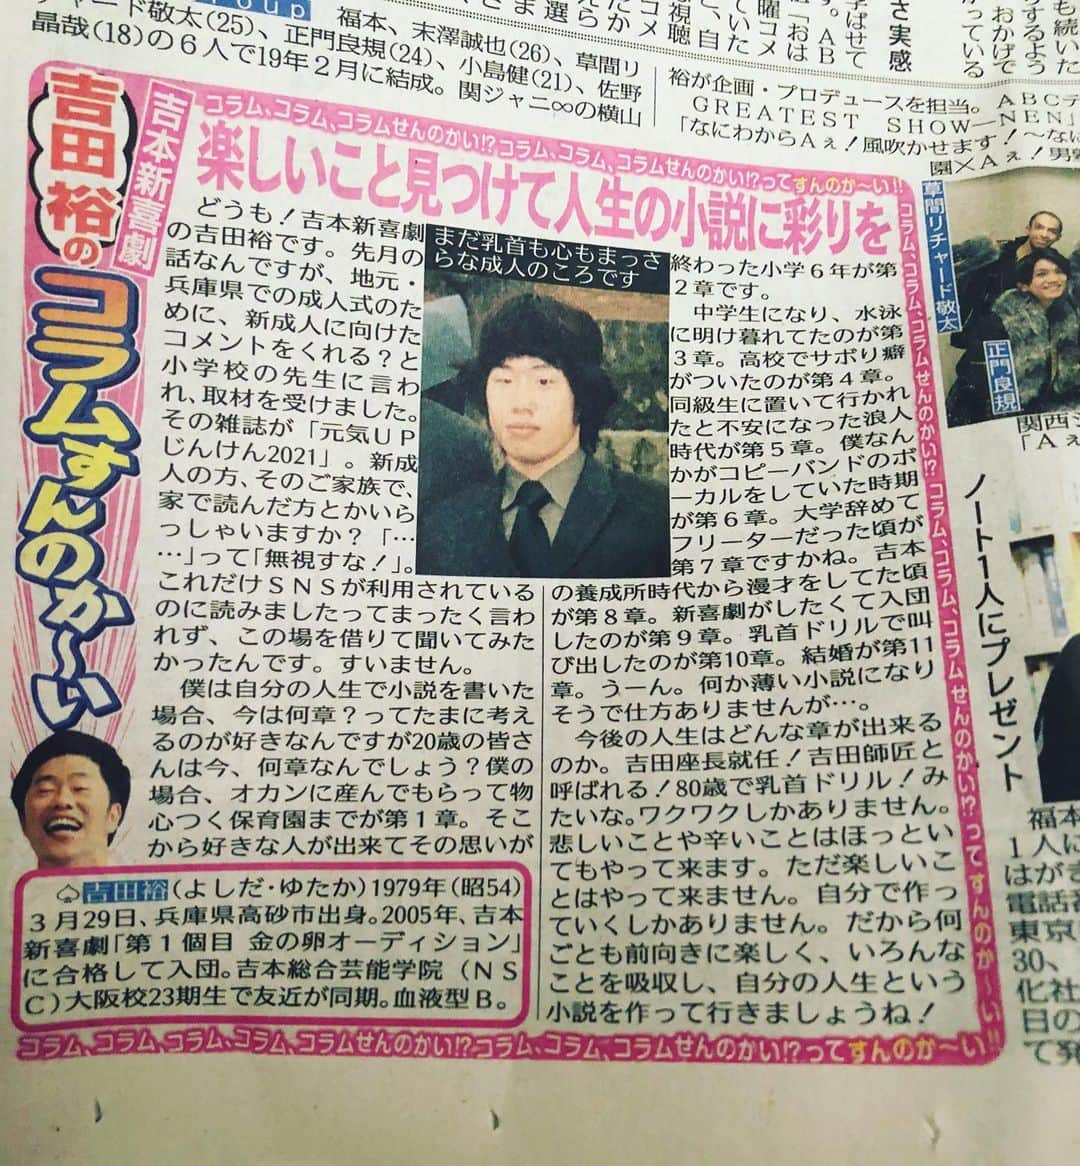 ャード敬太(25)、正門良規(24)、小島健(21)、佐野
晶哉(18)の6人で19年2月に結成。関ジャニ∞の横山
福本、末澤誠也(26)、草間リ
裕が企画・プロデュースを担当。ABCテ
GREATEST SHOW―NEN」
「なにわからAぇ!風吹かせます!～なに
園×Aぇ!男
吉田裕の
コラムすんのか～い
吉本新喜劇
コラム、コラム、コラムせんのかい!?コラム、コラム、コラムせんのかい!?ってすんのか～い!!
楽しいこと見つけて人生の小説に彩りを
どうも!吉本新喜劇
の吉田裕です。先月の
話なんですが、地元・
兵庫県での成人式のた
めに、新成人に向けた
コメントをくれる?と
小学校の先生に言わ
れ、取材を受けました。
その雑誌が「元気UP
じんけん2021」。新成
人の方、そのご家族で、
家で読んだ方とかいら
っしゃいますか?「…
…」って「無視すな!」。
これだけSNSが利用されている
のに読みましたってまったく言わ
れず、この場を借りて聞いてみた
かったんです。すいません。
僕は自分の人生で小説を書いた
場合、今は何章?ってたまに考え
るのが好きなんですが20歳の皆さ
んは今、何章なんでしょう?僕の
場合、オカンに産んでもらって物
心つく保育園までが第1章。そこ
から好きな人が出来てその思いが
まだ乳首も心もまっさ
らな成人のころです
終わった小学6年が第
2章です。
中学生になり、水泳
に明け暮れてたのが第
3章。高校でサボり癖
がついたのが第4章。
同級生に置いて行かれ
たと不安になった浪人
時代が第5章。僕なん
かがコピーバンドのボ
ーカルをしていた時期
が第6章。大学辞めて
フリーターだった頃が
第7章ですかね。吉本
の養成所時代から漫才をしてた頃
が第8章。新喜劇がしたくて入団
したのが第9章。乳首ドリルで叫
び出したのが第10章。結婚が第11
章。うーん。何か薄い小説になり
そうで仕方ありませんが…。
今後の人生はどんな章が出来る
のか。吉田座長就任!吉田師匠と
呼ばれる!80歳で乳首ドリル!み
たいな。ワクワクしかありません。
悲しいことや辛いことはほっとい
てもやって来ます。ただ楽しいこ
とはやって来ません。自分で作っ
ていくしかありません。だから何
ごとも前向きに楽しく、いろんな
ことを吸収し、自分の人生という
小説を作って行きましょうね!
♤吉田裕(よしだ・ゆたか)1979年(昭54)
3月29日、兵庫県高砂市出身。2005年、吉本
新喜劇「第1個目 金の卵オーディション」
に合格して入団。吉本総合芸能学院(NS
C)大阪校23期生で友近が同期。血液型B。
コラム、コラム、コラム、コラム、コラムせんのかい!?コラム、コラム、コラムせんのかい!?ってすんのか～い!!
コラム、コラム、コラム、コラムせんのかい!?コラム、コラム、コラム、コラムせんのかい!?ってすんのか～い!!
草間リチャード敬太
正門良規
関西ジ
「Aぇ
ノート1人にプレゼント
福本
1人に
はがき
電話番
東京
30、
化社
日の
て発